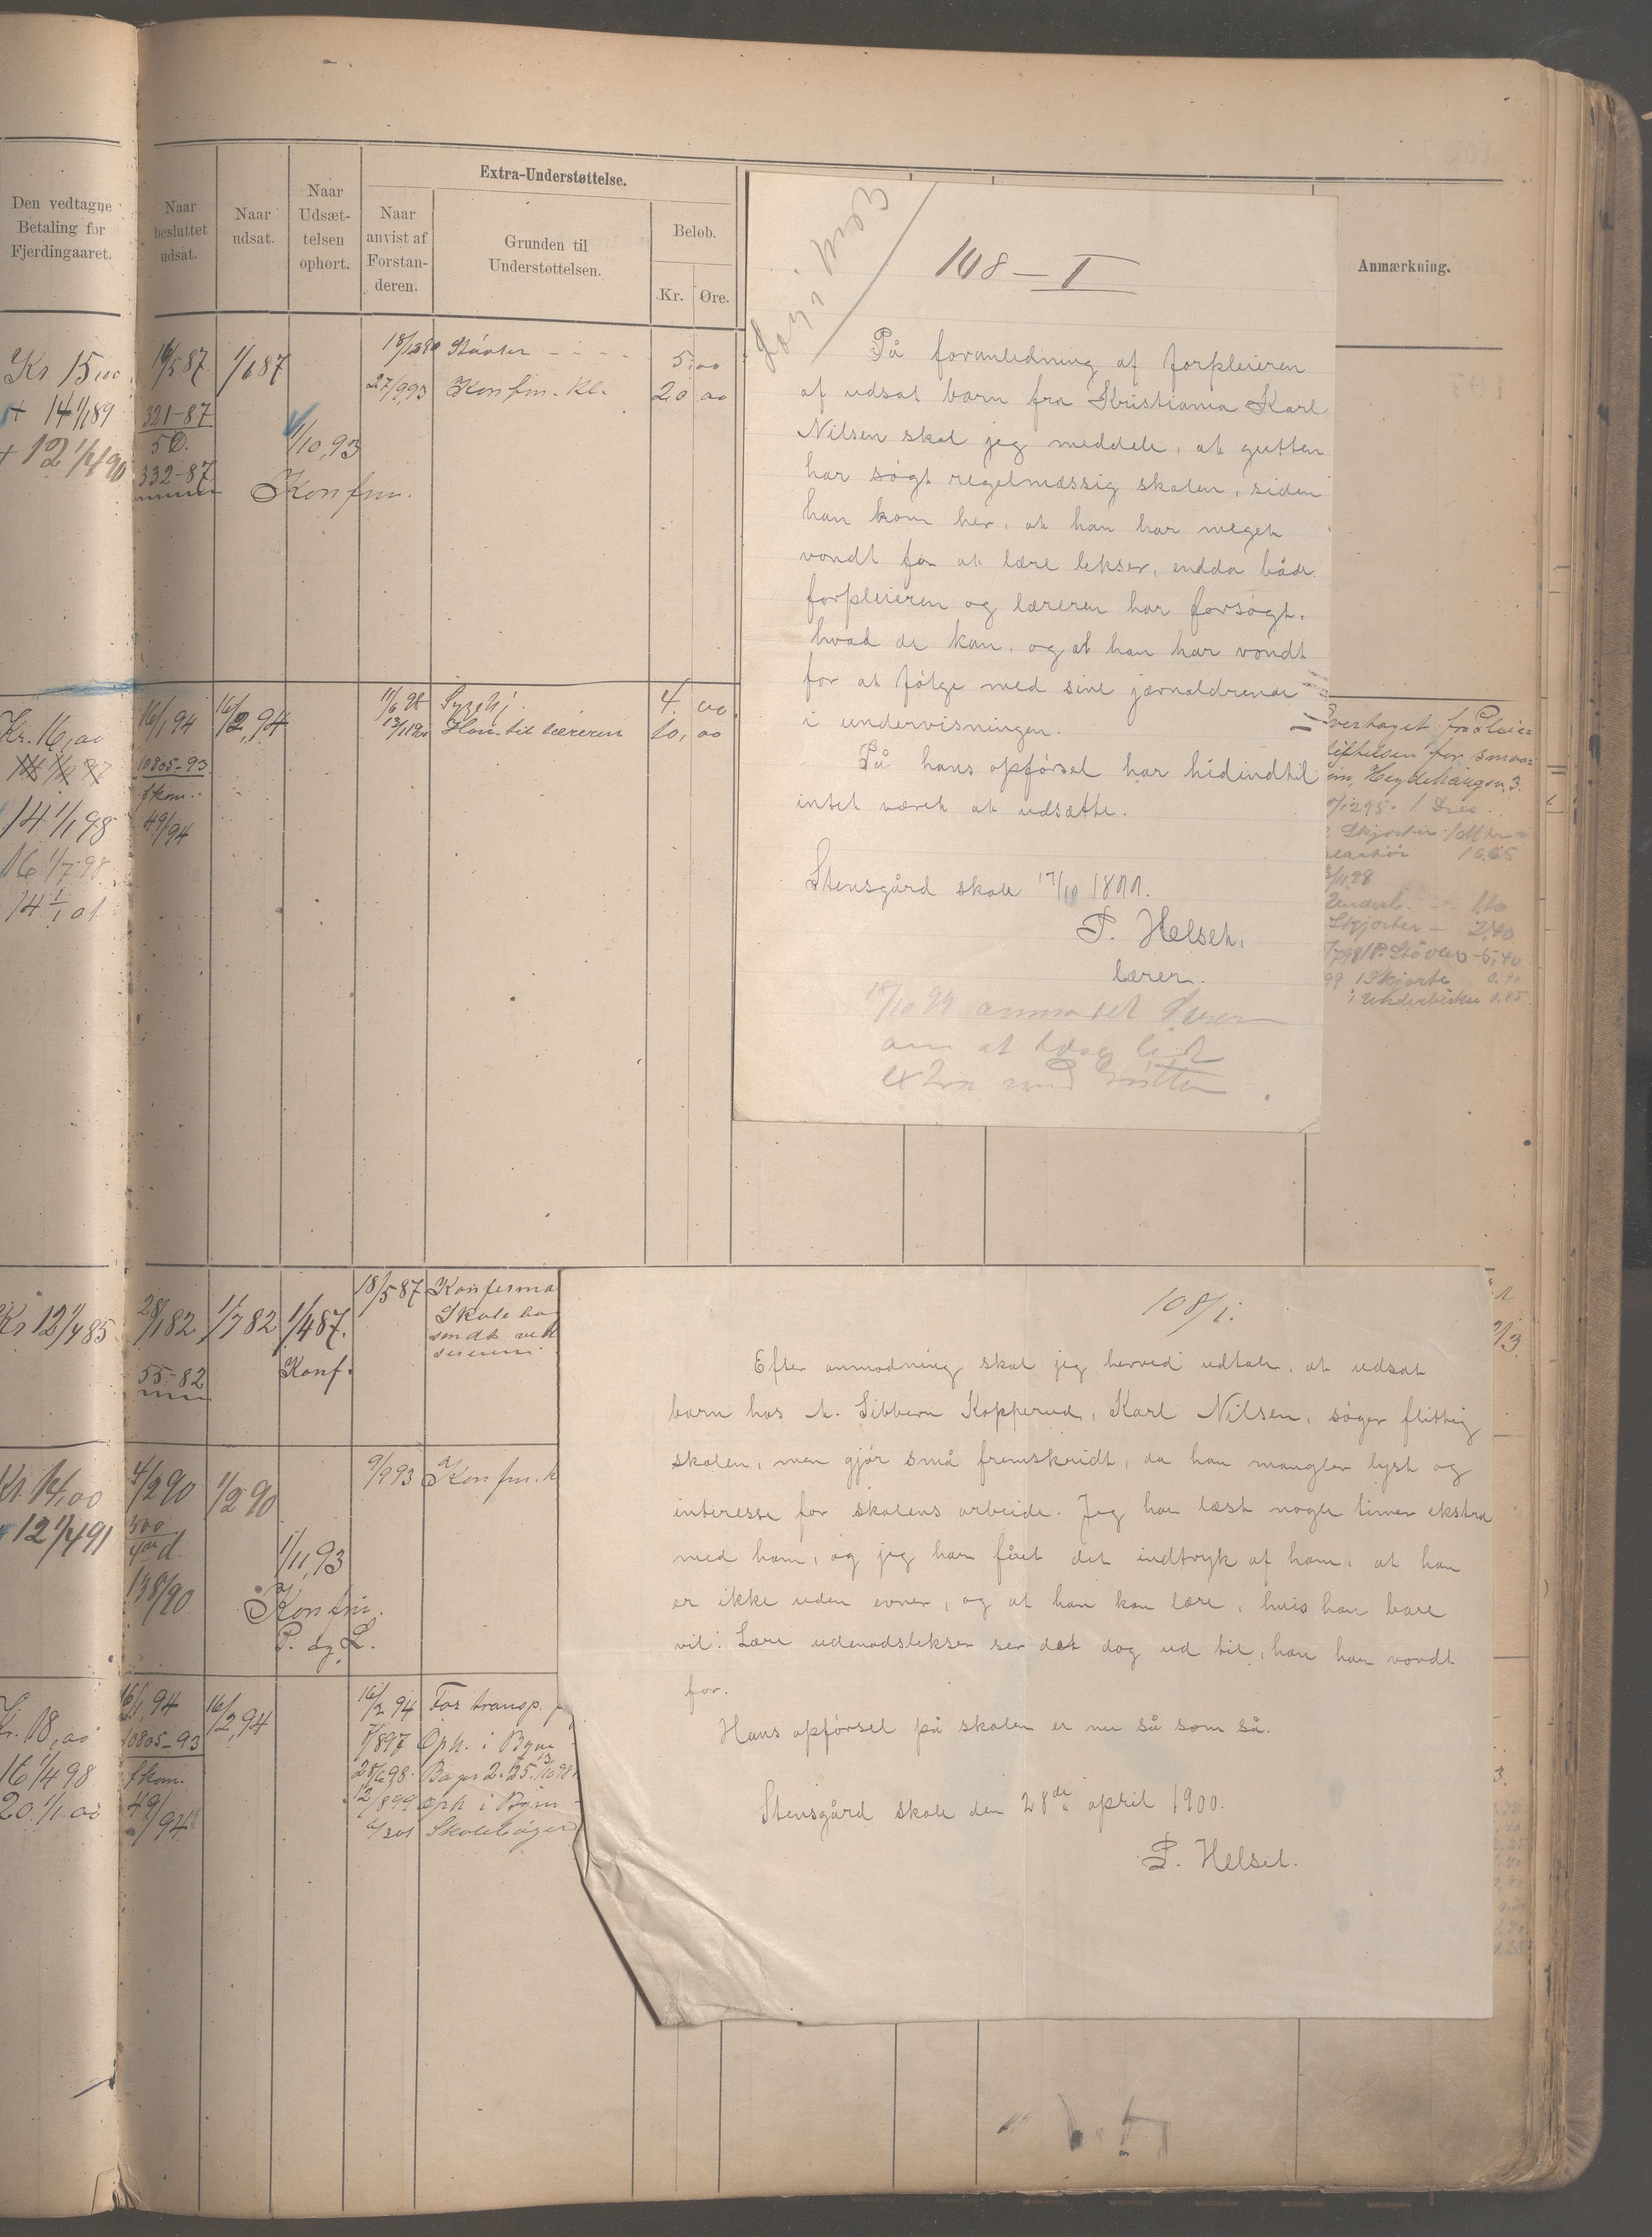 Extra-Understøttelse.
Den vedtagne
Betaling for
Fjerdingaaret.
Naar
besluttet
udsat.
Naar
udsat.
Naar
Udsæt-
telsen
ophørt.
Naar
anvist af
Forstan-
deren.
Grunden til
Understøttelsen.
Beløb.
Kr. Øre.
Anmærkning.
Kr 15,00
+ 14 1/1 89
+ 12 1/4 90
16/5 87
321-87
332-87
1/6 87
1/10,93
Konfm.
Støvler - - - - 5,00
27/9 93 Konfm. Kl. 20 00
Kr. 16,00
14 1/1 98
16 1/7 98
14 1/1 01
16/1 94
10805-93
fkom.
49/94
16/2,94
11/6 98 Sygehj. 4,00
Hon. til læreren 10,00
Kr 12 1/4 85
28/1 82
55-82
1/7 82
1/4 87.
Konf.
18/5 87 Konferma
Kr. 14,00
12 1/4 91
4/2 90
138/90
1/2 90
1/11,93
Konfm.
P. og L.
9/9 93 Konfm. k
Kr. 18,00
16 1/4 98
20 1/1 00
16/1,94
10805-93
fkom.
49/94
16/2,94
16/2 94 For transp.
7/8 97 Oph. i Byen
12/8 99 Oph i Byen
Skolebøger
108 - I
På foranledning af forpleieren
af udsat barn fra Kristiania Karl
Nilsen skal jeg meddele, at gutten
har søgt regelmæssig skolen, siden
han kom her, at han har meget
vondt for at lære lekser, endda både
forpleieren og læreren har forsøgt,
hvad de kan, og at han har vondt
for at følge med sine jævnaldrende
i undervisningen.
På hans opførsel har hidindtil
intet været at udsætte.
Stensgård skole 17/10 1899.
P. Helseth,
lærer.
18/10 99 anmodet Læreren
om at læse lidt
extra med Gutten.
Overtaget fra Pleie=
stiftelsen for smaa=
Heydehaugen 3.
Skjorter
Underb.
Skjorter - 2,40
Støvler - 5,40
1 Skjorte
1 Underbukse
108/I.
Efter anmodning skal jeg herved udtale, at udsat
barn hos A. Sibbern Kopperud, Karl Nilsen, søger flittig
skolen, men gjør små fremskridt, da han mangler lyst og
interesse for skolens arbeide. Jeg har læst nogle timer ekstra
med ham, og jeg har fået det indtryk af ham, at han
er ikke uden evner, og at han kan lære, hvis han bare
vil. Lære udenadslekser ser det dog ud til, han har vondt
for.
Hans opførsel på skolen er nu så som så.
Stensgård skole den 28de april 1900.
P. Helset.